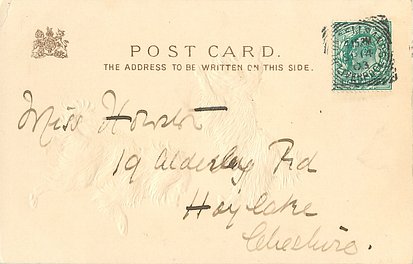 POST CARD.
THE ADDRESS TO BE WRITTEN ON THIS SIDE.
Miss Howson
19 Alderley Rd
Hoylake
Cheshire.